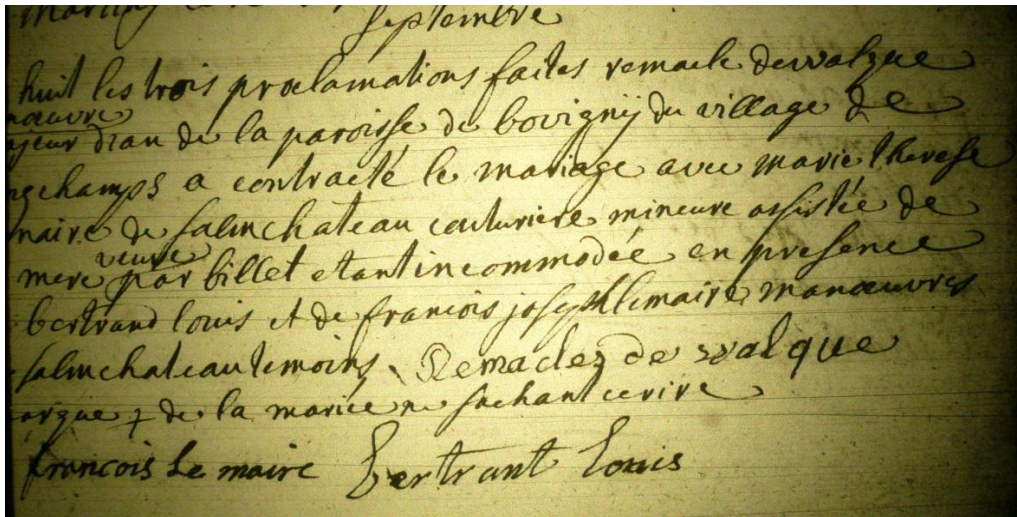 septembre
huit les trois proclamations faites remacle dewalque
manœuvre
majeur d'an de la paroisse de bovignij du village de
ngchamps a contracté le mariage avec marie therese
maire de salmchateau couturiere mineure assistée de
veuve
mere par billet etant incommodée en presence
bertrand louis et de francois joseph lemaire manœuvres
salmchateau temoins. Remacle de walque
arque + de la mariée ne sachant ecrire
francois Le maire bertrant Louis